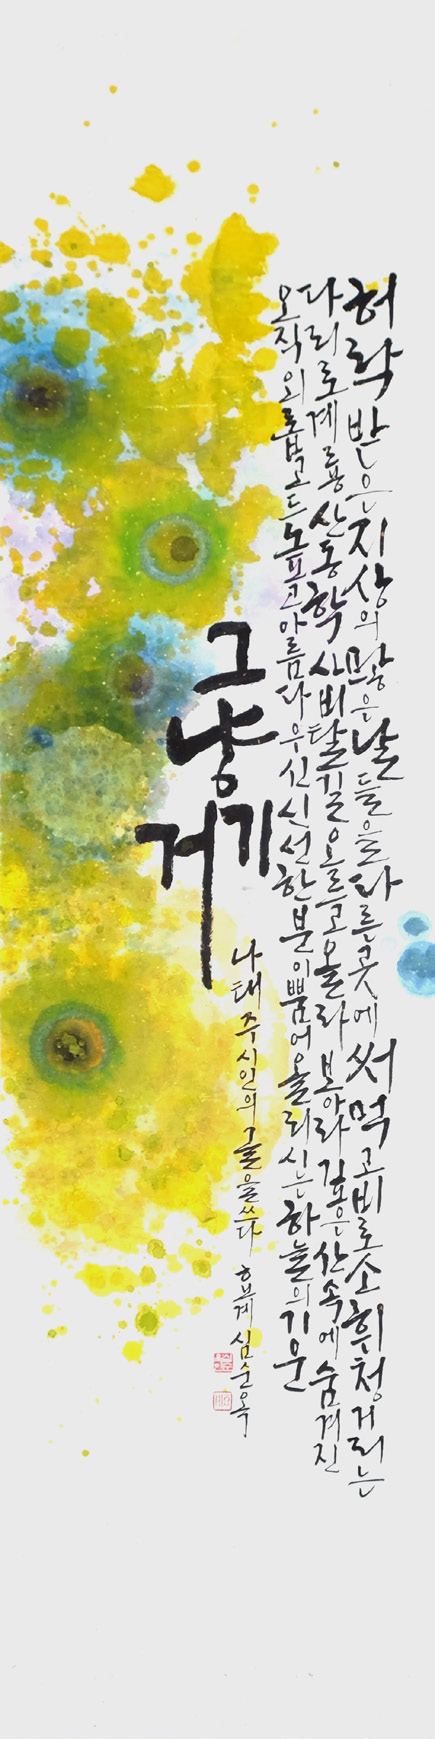 허락 받은 지상의 많은 날들을 다른 곳에 써먹고 비로소 휘청거리는
다리로 계룡산 동학사 비탈길 오르고 올라 보아라 깊은 산속에 숨겨진
오직 외롭고도 높고 아름다우신 신선 한 분이 뿜어 올리시는 하늘의 기운
그냥
거기
나태주 시인의 글을 쓰다 심순옥